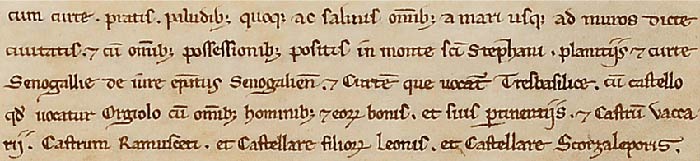 cum curte . pratis . piludib; quoq; ac salinis omĩb; a mari usq; ad muros dicte
ciuitatis . ⁊ cũ omĩb; possessionib; positis in monte sc̃i Stephani . planitijs ⁊ curte
Senogallie de iure ep̃atus Senogalien̄ . ⁊ Curtem que uocat̃ Tresbasilice . cũ castello
qd̃ uocatur Orgiolo cũ omĩb; hominib; ⁊ eor̃ bonis . et suis ptinentijs . ⁊ Castrũ vacca
rij . Castrum Ramusceti . et Castellare filior̃ Leonis . et Castellare Scorzaleporis .